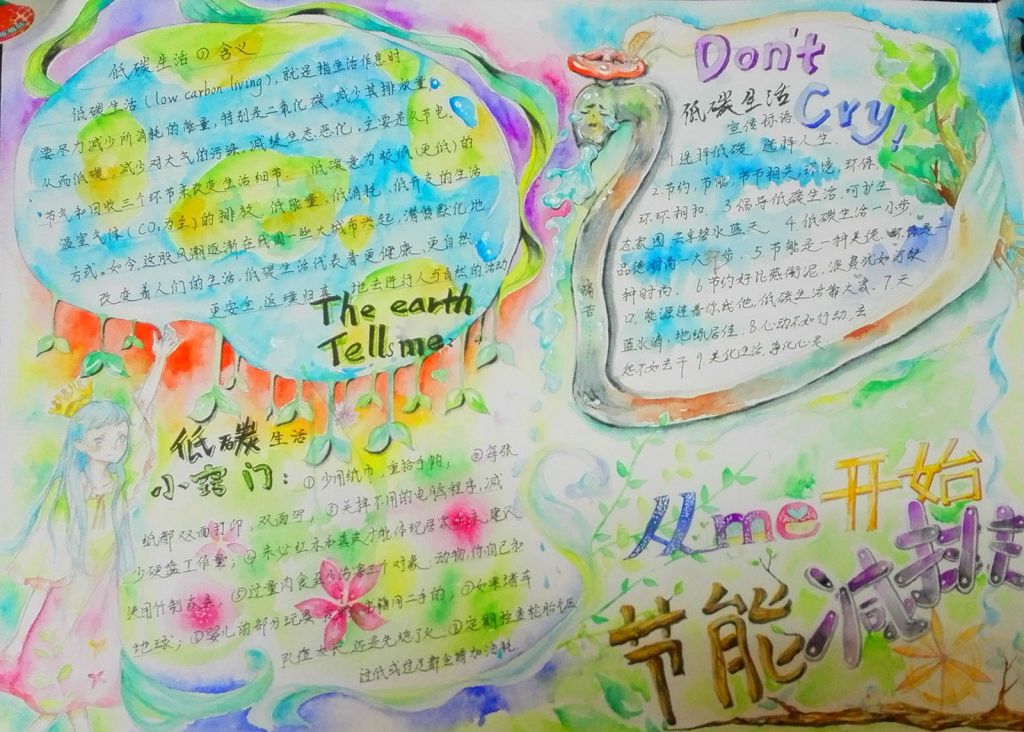 低碳生活的含义
低碳生活(low carbon living),就是指生活作息时
要尽力减少所消耗的能量,特别是二氧化碳,减少其排放量,
从而低碳,减少对大气的污染,减缓生态恶化,主要是从节电、
节气和回收三个环节来改变生活细节。低碳意为较低(更低)的
温室气体(CO₂为主)的排放,低能量、低消耗、低开支的生活
方式。如今,这股风潮逐渐在我国一些大城市兴起,潜移默化地
改变着人们的生活。低碳生活代表着更健康、更自然、
更安全,返璞归真地去进行人与自然的活动
The earth
Tells me:
Don't
Cry!
低碳生活
宣传标语
1.选择低碳 选择人生.
2.节约,节能,节节相关,环境,环保,
环环相扣. 3.倡导低碳生活,呵护生
态家园 共享碧水蓝天 4.低碳生活一小步
品德崇高一大步. 5.节能是一种美德 环保是一
种时尚. 6.节约好比燕衔泥,浪费犹如河缺
口,能源连着你我他,低碳生活靠大家. 7.天
蓝水清,地绿居佳. 8.心动不如行动,去
想不如去干 9.美化生活,净化心灵.
低碳生活
小窍门:
①少用纸巾,重拾手帕; ②每张
纸都双面打印,双面写; ③关掉不用的电脑程序,减
少硬盘工作量; ④未必红木和真皮才能体现居家 建议
使用竹制家具; ⑤过量肉食至少伤害三个对象:动物,你自己和
地球; ⑥婴儿的部分玩具 用二手的; ⑦如果堵车
队伍太长 还是先熄了火 ⑧定期检查轮胎气压
过低或过足都会增加油耗.
从me开始
节能减排